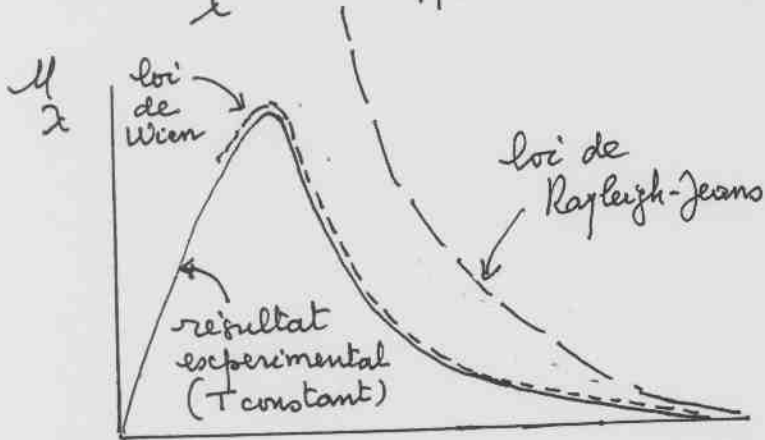 M
λ
loi
de
Wien
loi de
Rayleigh-Jeans
résultat
expérimental
(T constant)